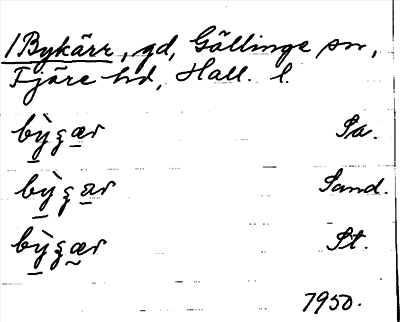 1 Bykärr, gd, Gällinge sn,
Fjäre hd, Hall. l.
bỳʒær Sa.
bỳʒar Sand.
bỳʒær St.
1950.